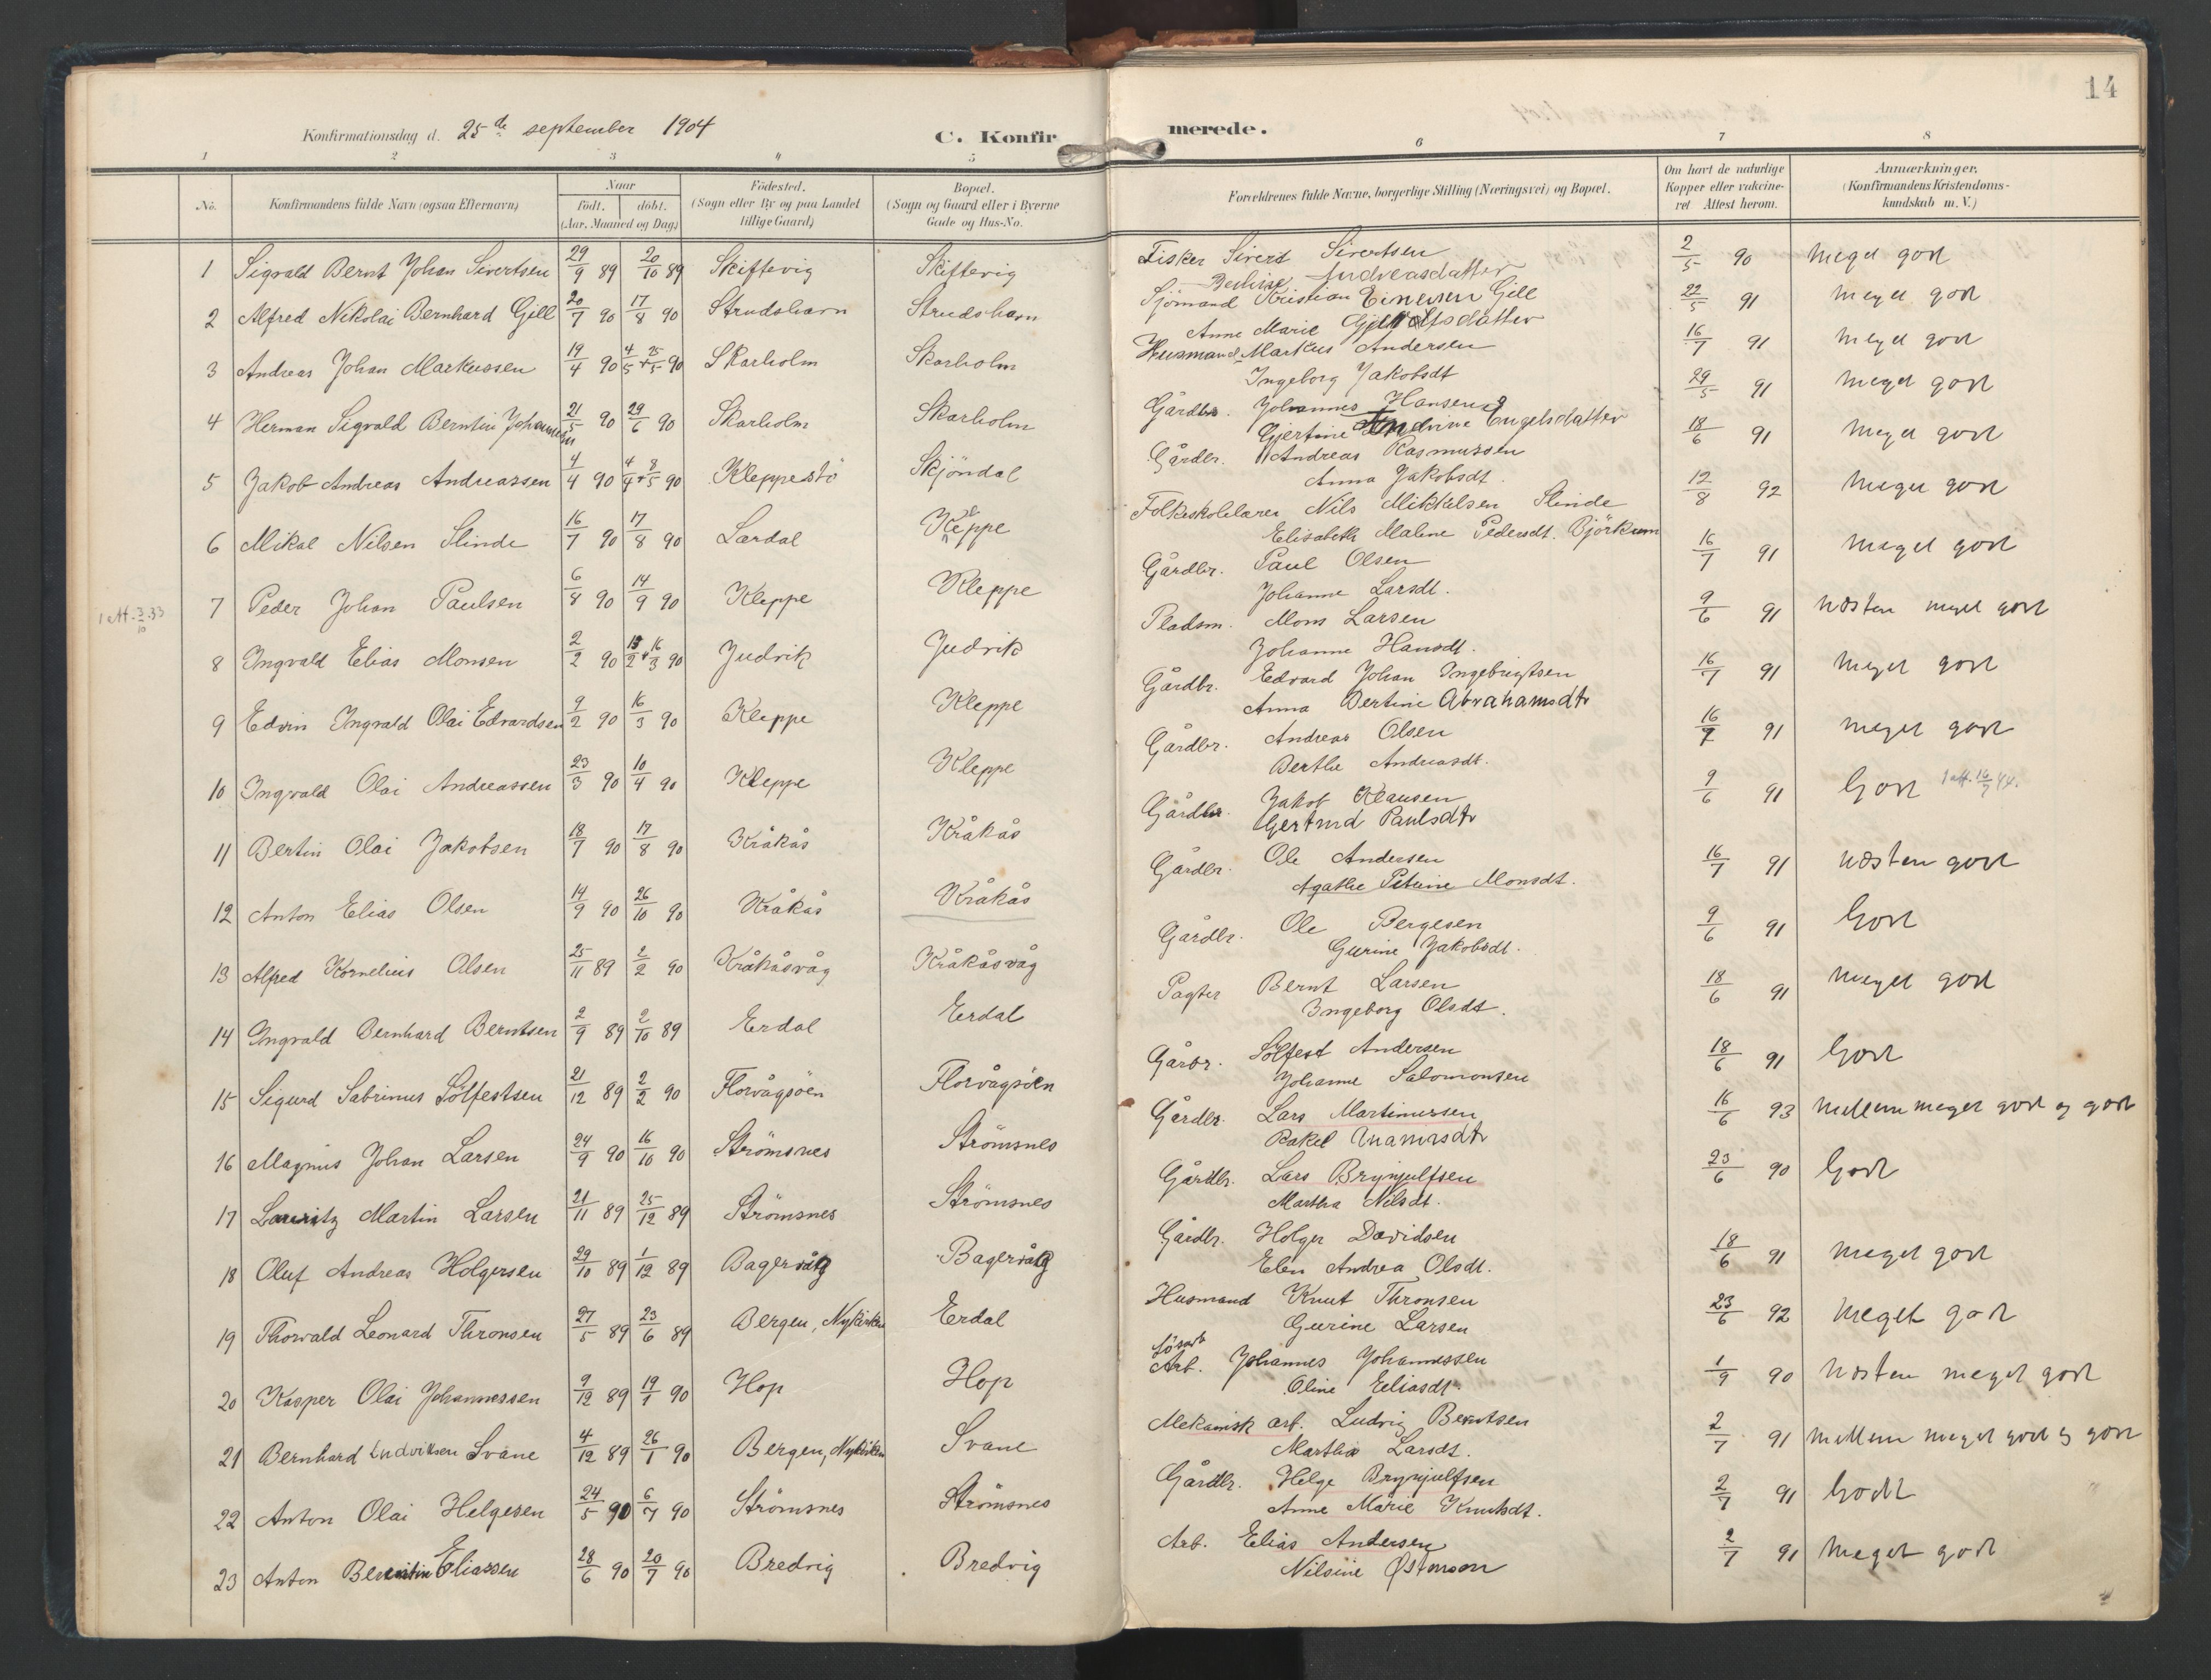 14
Konfirmationsdag d. 25de september 1904
C. Konfirmerede.
1 2 3 4 5 6 7 8
No. Konfirmandens fulde Navn (ogsaa Efternavn) Naar Födt. döbt. (Aar, Maaned og Dag) Födested. (Sogn eller By og paa Landet tillige Gaard) Bopæl. (Sogn og Gaard eller i Byerne Gade og Hus-No. Forældrenes fulde Navne, borgerlige Stilling (Næringsvei) og Bopæl. Om havt de naturlige Kopper eller vakcineret Attest herom. Anmærkninger. (Konfirmandens Kristendomskundskab m. V.)
1 Sigvald Bernt Johan Sivertsen 29/9 89 20/10 89 Skiftevig Skiftevig Fisker Sivert Sivertsen 2/5 90 meget godt
Andreasdatter
2 Alfred Nikolai Bernhard Gill 20/7 90 17/8 90 Strudshavn Strudshavn Sjömand Kristian Einersen Gill 22/5 91 meget godt
Anne Marie
3 Andreas Johan Markussen 19/4 90 4/5 + 25/5 90 Skarholm Skarholm Husmand Markus Andersen 16/7 91 meget godt
Ingeborg Jakobsdt
4 Herman Sigvald Berntin Johannesen 21/5 90 29/6 90 Skarholm Skarholm Gårdbr. Johannes Hansen 29/5 91 meget godt
Gjertine Engelsdatter
5 Jakob Andreas Andreassen 4/4 90 4/4 + 8/5 90 Kleppestö Skjöndal Gårdbr. Andreas Rasmussen 18/6 91 meget godt
Anna Jakobsdt.
6 Mikal Nilsen Slinde 16/7 90 17/8 90 Lærdal Kleppe Folkeskolelærer Nils Mikkelsen Slinde 12/8 92 meget godt
Elisabeth Malene Pedersdt. Bjørkum
1 att. 3/10 33
7 Peder Johan Paulsen 6/8 90 14/9 90 Kleppe Kleppe Gårdbr. Paul Olsen 16/7 91 meget godt
Johanne Larsdt.
8 Ingvald Elias Monsen 2/2 90 15/2 + 16/3 90 Judvik Judvik Pladsm. Mons Larsen 9/6 91 næsten meget godt
Johanne Hansdt.
9 Edvin Ingvald Olai Edvardsen 9/2 90 16/3 90 Kleppe Kleppe Gårdbr. Edvard Johan Ingebrigtsen 16/7 91 meget godt
Anna Bertine Abrahamsdtr
10 Ingvald Olai Andreassen 23/3 90 10/4 90 Kleppe Kleppe Gårdbr. Andreas Olsen 16/7 91 meget godt
Berthe Andreasdt.
11 Bertin Olai Jakobsen 18/7 90 17/8 90 Kråkås Kråkås Gårdbr. Jakob Klausen 9/6 91 Godt 1 att. 16/7 44.
Gertrud Paulsdtr
12 Anton Elias Olsen 14/9 90 26/10 90 Kråkås Kråkås Gårdbr. Ole Andersen 16/7 91 næsten godt
Agathe Petrine Monsdt.
13 Alfred Kornelius Olsen 25/11 89 2/2 90 Kråkåsvåg Kråkåsvåg Gårdbr. Ole Bergesen 9/6 91 Godt
Gurine Jakobsdt.
14 Ingvald Bernhard Berntsen 2/9 89 2/10 89 Erdal Erdal Pagter Bernt Larsen 18/6 91 meget godt
Ingeborg Olsdt.
15 Sigurd Sabrinus Sölfestsen 21/12 89 2/2 90 Florvågsöen Florvågsöen Gårbr. Sölfest Andersen 18/6 91 Godt
Johanne Salomonsen
16 Magnus Johan Larsen 24/9 90 16/10 90 Strömsnes Strömsnes Gårdbr. Lars Martinussen 16/6 93 mellem meget godt og godt
Rakel
17 Lauritz Martin Larsen 21/11 89 25/12 89 Strömsnes Strömsnes Gårdbr. Lars Brynjulfsen 23/6 90 Godt
Martha Nilsdt.
18 Oluf Andreas Holgersen 29/10 89 1/12 89 Bagervåg Bagervåg Gårdbr. Holger Davidsen 18/6 91 meget godt
Elen Andrea Olsdt.
19 Thorvald Leonard Thronsen 27/5 89 23/6 89 Bergen, Nykirken Erdal Husmand Knut Thronsen 23/6 92 meget godt
Gurine Larsen
20 Kasper Olai Johannessen 9/12 89 19/1 90 Hop Hop Lösarb Arb. Johannes Johannessen 1/9 90 næsten meget godt
Oline Eliasdt.
21 Bernhard Ludviksen Svane 4/12 89 26/1 90 Bergen, Nykirken Svane Mekanisk arb. Ludvig Berntsen 2/7 91 mellem meget godt og godt
Martha Larsdt.
22 Anton Olai Helgesen 24/5 90 6/7 90 Strömsnes Strömsnes Gårdbr. Helge Brynjulfsen 2/7 91 Godt
Anne Marie Knutsdt.
23 Anton Berentin Eliassen 28/6 90 20/7 90 Bredvig Bredvig Arb. Elias Andersen 2/7 91 meget godt
Nilsine